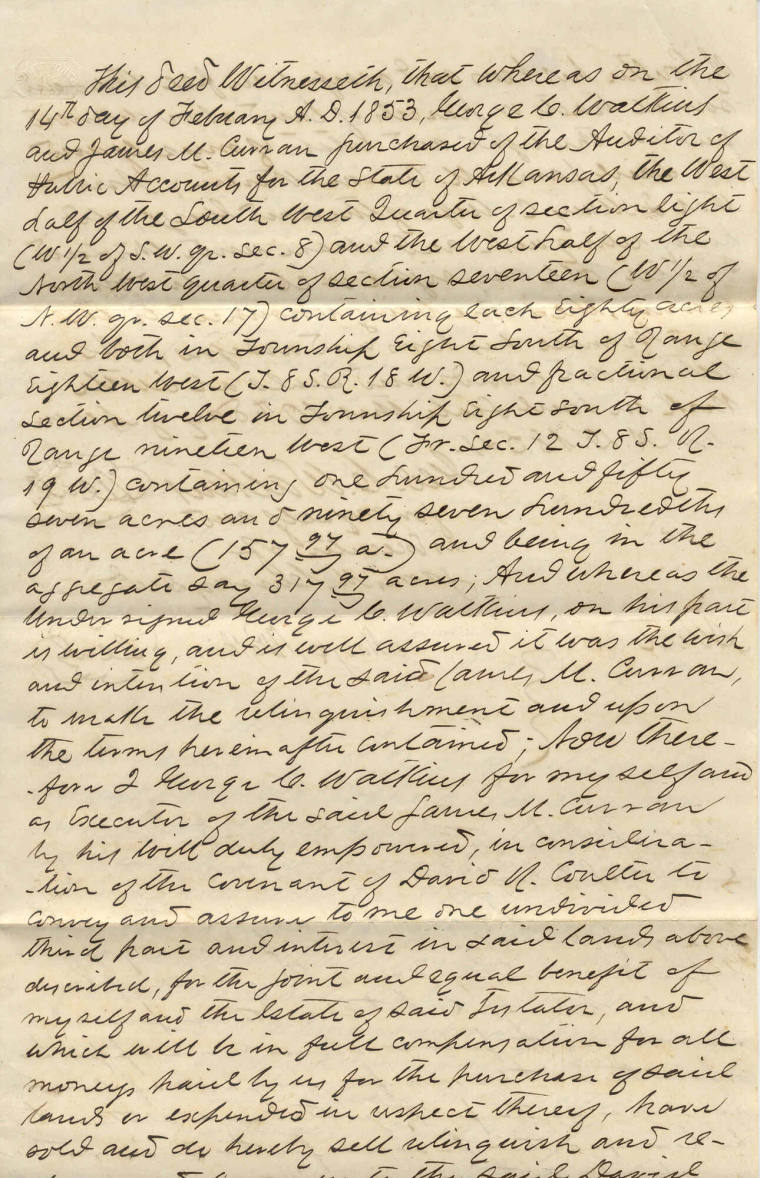 This deed Witnesseth, that whereas on the
14th day of February A.D. 1853, George C. Watkins
and James M. Curran purchased of the Auditor of
Public Accounts for the State of Arkansas, the West
half of the South West Quarter of section Eight
(W 1/2 of S.W. qr. sec. 8) and the West half of the
North West quarter of section seventeen (W 1/2 of
N.W. qr. sec. 17) containing each Eighty acres
and both in Township Eight South of Range
Eighteen West (T. 8 S. R. 18 W.) and fractional
section twelve in Township Eight South of
Range nineteen West (Fr. sec. 12 T. 8 S. R.
19 W.) containing one hundred and fifty
seven acres and ninety seven hundredths
of an acre (157 97 a.) and being in the
aggregate say 317 97 acres; And whereas the
undersigned George C. Watkins, on his part
is willing, and is well assured it was the wish
and intention of the said James M. Curran,
to make the relinquishment and upon
the terms hereinafter contained; Now there-
-fore I George C. Watkins for myself and
as Executor of the said James M. Curran
by his will duly empowered, in considera-
-tion of the covenant of David R. Coulter to
convey and assure to me one undivided
third part and interest in said lands above
described, for the joint and equal benefit of
myself and the Estate of said Testator, and
which will be in full compensation for all
moneys paid by us for the purchase of said
lands or expended in respect thereof, have
sold and do hereby sell relinquish and re-
unto the said David